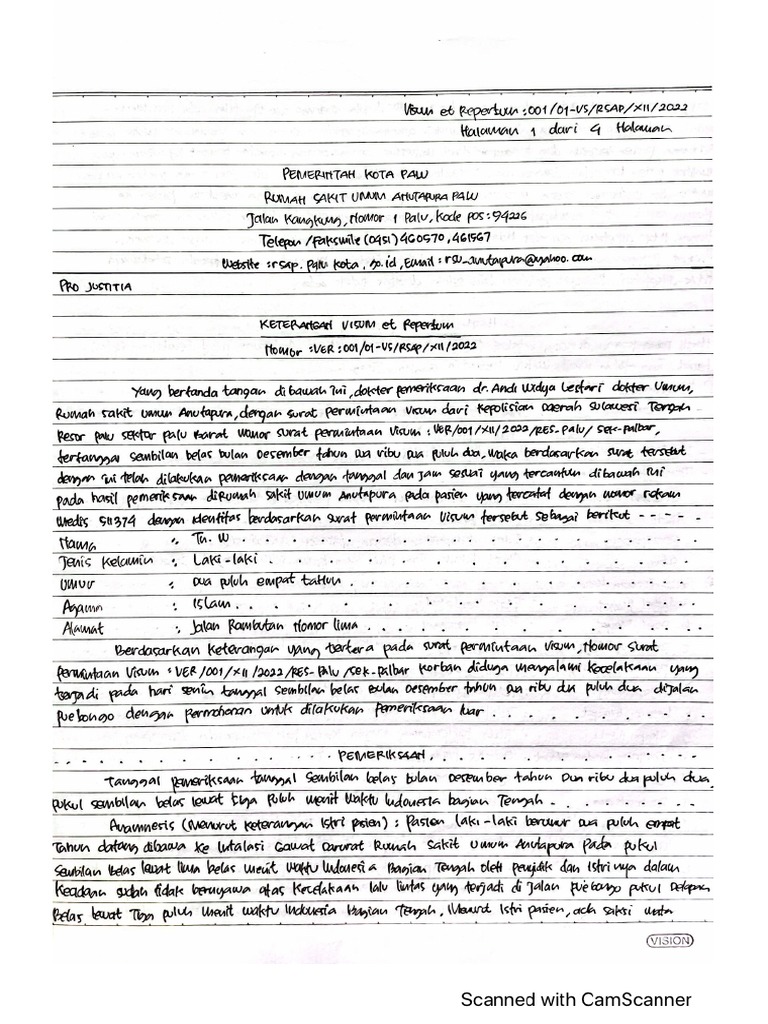 Visum et Repertum : 001/01-VS/RSAP/XII/2022
Halaman 1 dari 4 Halaman
PEMERINTAH KOTA PALU
RUMAH SAKIT UMUM ANUTAPURA PALU
Jalan Kangkung, Nomor 1 Palu, Kode pos : 94226
Telepon /Faksmile (0451) 460570, 461567
Website : rsap. Palu kota . go.id, Email : rsu_anutapura@yahoo.com
PRO JUSTITIA
KETERANGAN VISUM et Repertum
Nomor : VER : 001/01-VS/RSAP/XII/2022
Yang bertanda tangan di bawah ini, dokter pemeriksaan dr. Andi Widya Lestari dokter Umum,
Rumah sakit umum Anutapura, dengan surat permintaan visum dari Kepolisian Daerah Sulawesi Tengah
Resor palu sektor palu Barat nomor surat permintaan Visum : VER/001/XII/2022/RES-Palu/ Sek-Palbar,
tertanggal sembilan belas bulan Desember tahun dua ribu dua puluh dua, maka berdasarkan surat tersebut
dengan ini telah dilakukan pemeriksaan dengan tanggal dan jam sesuai yang tercantum dibawah ini
pada hasil pemeriksaan di Rumah sakit Umum Anutapura pada pasien yang tercatat dengan nomor rekam
medis 511374 dengan identitas berdasarkan surat permintaan Visum tersebut sebagai berikut - - - - -
Nama : Tn. W . . . . . . . . . . . .
Jenis Kelamin : Laki-laki . . . . . . . . . . . .
Umur : Dua puluh empat tahun . . . . . . . . . .
Agama : Islam . . . . . . . . . . . .
Alamat : Jalan Rambutan Nomor lima . . . . . . . . .
Berdasarkan keterangan yang tertera pada surat permintaan Visum, Nomor Surat
permintaan Visum : VER/001/XII/2022/RES-Palu/Sek-Palbar korban diduga mengalami kecelakaan yang
terjadi pada hari senin tanggal sembilan belas Bulan Desember tahun dua ribu dua puluh dua dijalan
Puebongo dengan permohonan untuk dilakukan pemeriksaan luar . . . . . . . .
. . . . . . . . . . PEMERIKSAAN . . . . . . . . . .
Tanggal pemeriksaan tanggal Sembilan belas bulan Desember tahun Dua ribu dua puluh dua,
pukul sembilan belas lewat tiga puluh menit Waktu Indonesia bagian Tengah . . . . . . .
Anamnesis (Menurut keterangan Istri pasien) : Pasien laki-laki berumur dua puluh empat
Tahun datang dibawa ke Intalasi Gawat Darurat Rumah Sakit Umum Anutapura Pada pukul
Sembilan belas lewat lima belas menit Waktu Indonesia Bagian Tengah oleh penyidik dan Istrinya dalam
Keadaan sudah tidak bernyawa atas Kecelakaan lalu lintas yang terjadi di Jalan Puebongo pukul Delapan
Belas lewat Tiga puluh menit waktu Indonesia Bagian Tengah, Menurut Istri pasien, ada saksi mata
VISION
Scanned with CamScanner